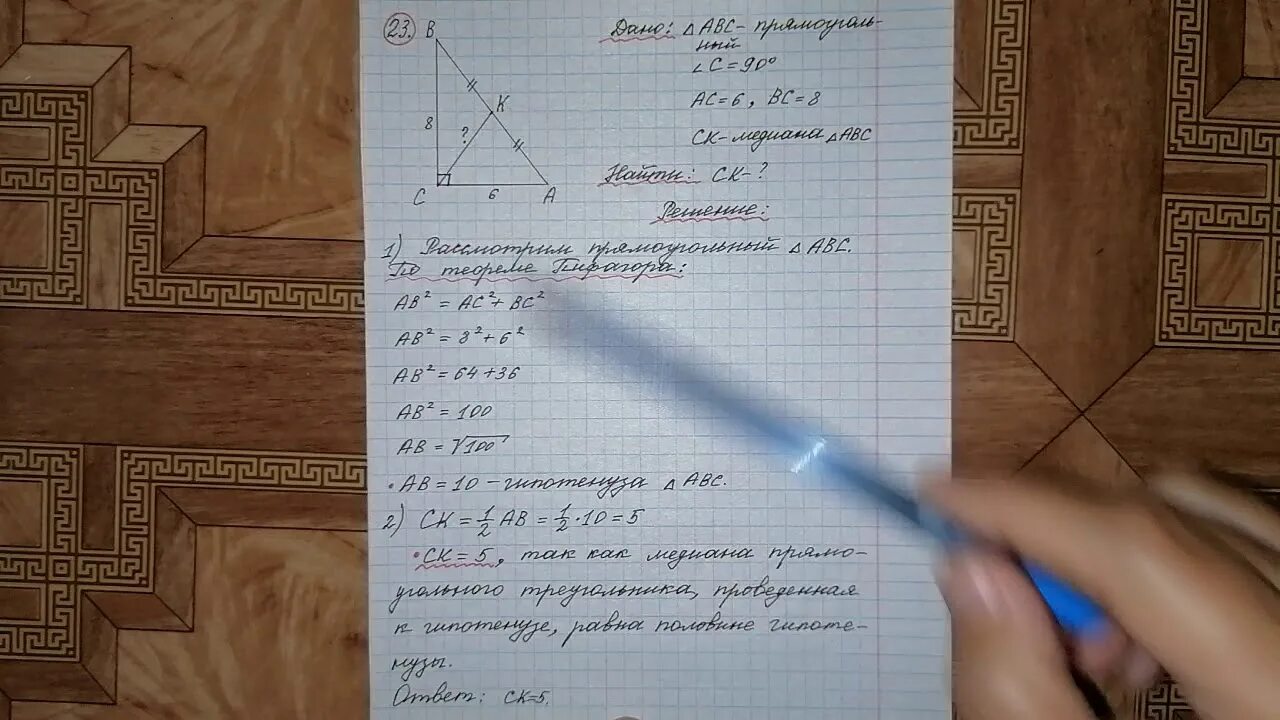 23.
B
K
8
?
C
6
A
Дано: △ABC - прямоуголь-
ный
∠C = 90°
AC = 6, BC = 8
CK - медиана △ABC
Найти: CK - ?
Решение:
1) Рассмотрим прямоугольный △ABC.
По теореме Пифагора:
AB² = AC² + BC²
AB² = 8² + 6²
AB² = 64 + 36
AB² = 100
AB = √100
• AB = 10 - гипотенуза △ABC.
2) CK = 1/2 AB = 1/2 · 10 = 5
• CK = 5, так как медиана прямо-
угольного треугольника, проведенная
к гипотенузе, равна половине гипоте-
нузы.
Ответ: CK = 5.